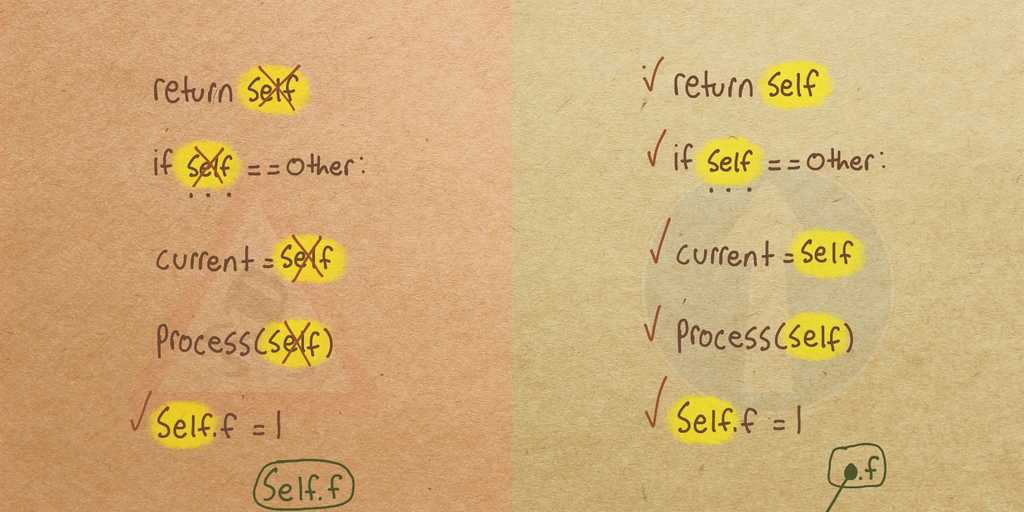 return self
if self == other:
...
current = self
process(self)
self.f = 1
self.f
✓ return self
✓ if self == other:
...
✓ current = self
✓ process(self)
✓ self.f = 1
.f